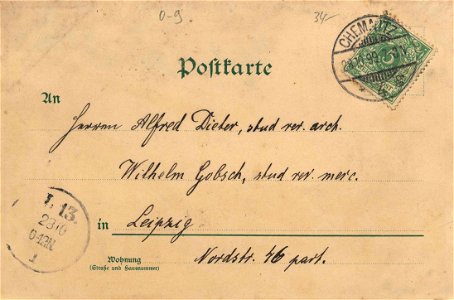 0-9
34-
CHEMNITZ
Postkarte
An
Herren Alfred Dieter, stud rer. arch.
Wilhelm Gobsch, stud rer. merc.
in Leipzig
Wohnung
(Straße und Hausnummer)
Nordstr. 46 part.
13.